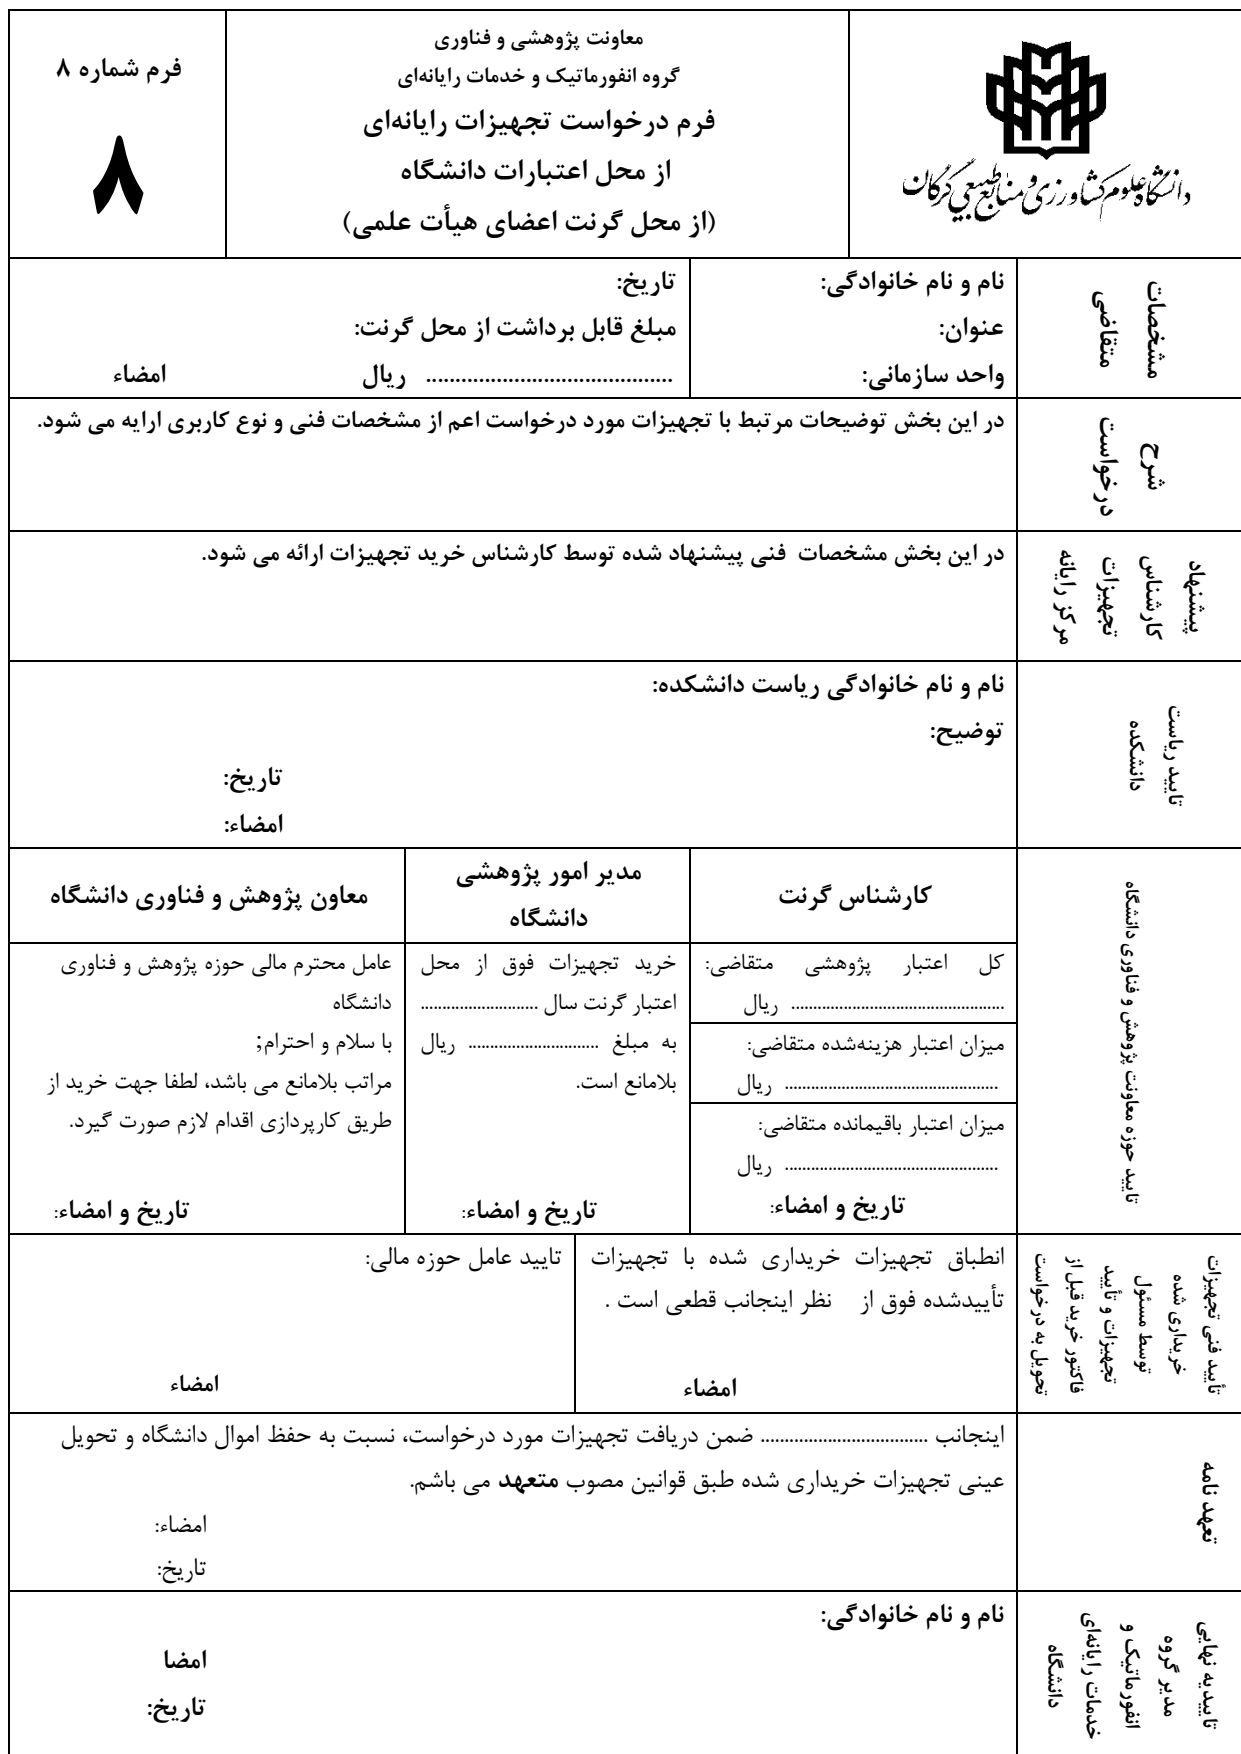 دانشگاه علوم کشاورزی و منابع طبیعی گرگان
معاونت پژوهشی و فناوری
گروه انفورماتیک و خدمات رایانه‌ای
فرم درخواست تجهیزات رایانه‌ای
از محل اعتبارات دانشگاه
(از محل گرنت اعضای هیأت علمی)
فرم شماره ۸
۸
مشخصات
متقاضی
نام و نام خانوادگی:
عنوان:
واحد سازمانی:
تاریخ:
مبلغ قابل برداشت از محل گرنت:
.......................................... ریال امضاء
شرح
درخواست
در این بخش توضیحات مرتبط با تجهیزات مورد درخواست اعم از مشخصات فنی و نوع کاربری ارایه می شود.
پیشنهاد
کارشناس
تجهیزات
مرکز رایانه
در این بخش مشخصات فنی پیشنهاد شده توسط کارشناس خرید تجهیزات ارائه می شود.
تایید ریاست
دانشکده
نام و نام خانوادگی ریاست دانشکده:
توضیح:
تاریخ:
امضاء:
تایید حوزه معاونت پژوهش و فناوری دانشگاه
کارشناس گرنت
کل اعتبار پژوهشی متقاضی:
................................................. ریال
میزان اعتبار هزینه‌شده متقاضی:
................................................. ریال
میزان اعتبار باقیمانده متقاضی:
................................................. ریال
تاریخ و امضاء:
مدیر امور پژوهشی
دانشگاه
خرید تجهیزات فوق از محل
اعتبار گرنت سال ...........................
به مبلغ .............................. ریال
بلامانع است.
تاریخ و امضاء:
معاون پژوهش و فناوری دانشگاه
عامل محترم مالی حوزه پژوهش و فناوری
دانشگاه
با سلام و احترام;
مراتب بلامانع می باشد، لطفا جهت خرید از
طریق کارپردازی اقدام لازم صورت گیرد.
تاریخ و امضاء:
تأیید فنی تجهیزات
خریداری شده
توسط مسئول
تجهیزات و تأیید
فاکتور خرید قبل از
تحویل به درخواست
انطباق تجهیزات خریداری شده با تجهیزات
تأییدشده فوق از نظر اینجانب قطعی است .
امضاء
تایید عامل حوزه مالی:
امضاء
تعهد نامه
اینجانب ................................... ضمن دریافت تجهیزات مورد درخواست، نسبت به حفظ اموال دانشگاه و تحویل
عینی تجهیزات خریداری شده طبق قوانین مصوب متعهد می باشم.
امضاء:
تاریخ:
تاییدیه نهایی
مدیر گروه
انفورماتیک و
خدمات رایانه‌ای
دانشگاه
نام و نام خانوادگی:
امضا
تاریخ: